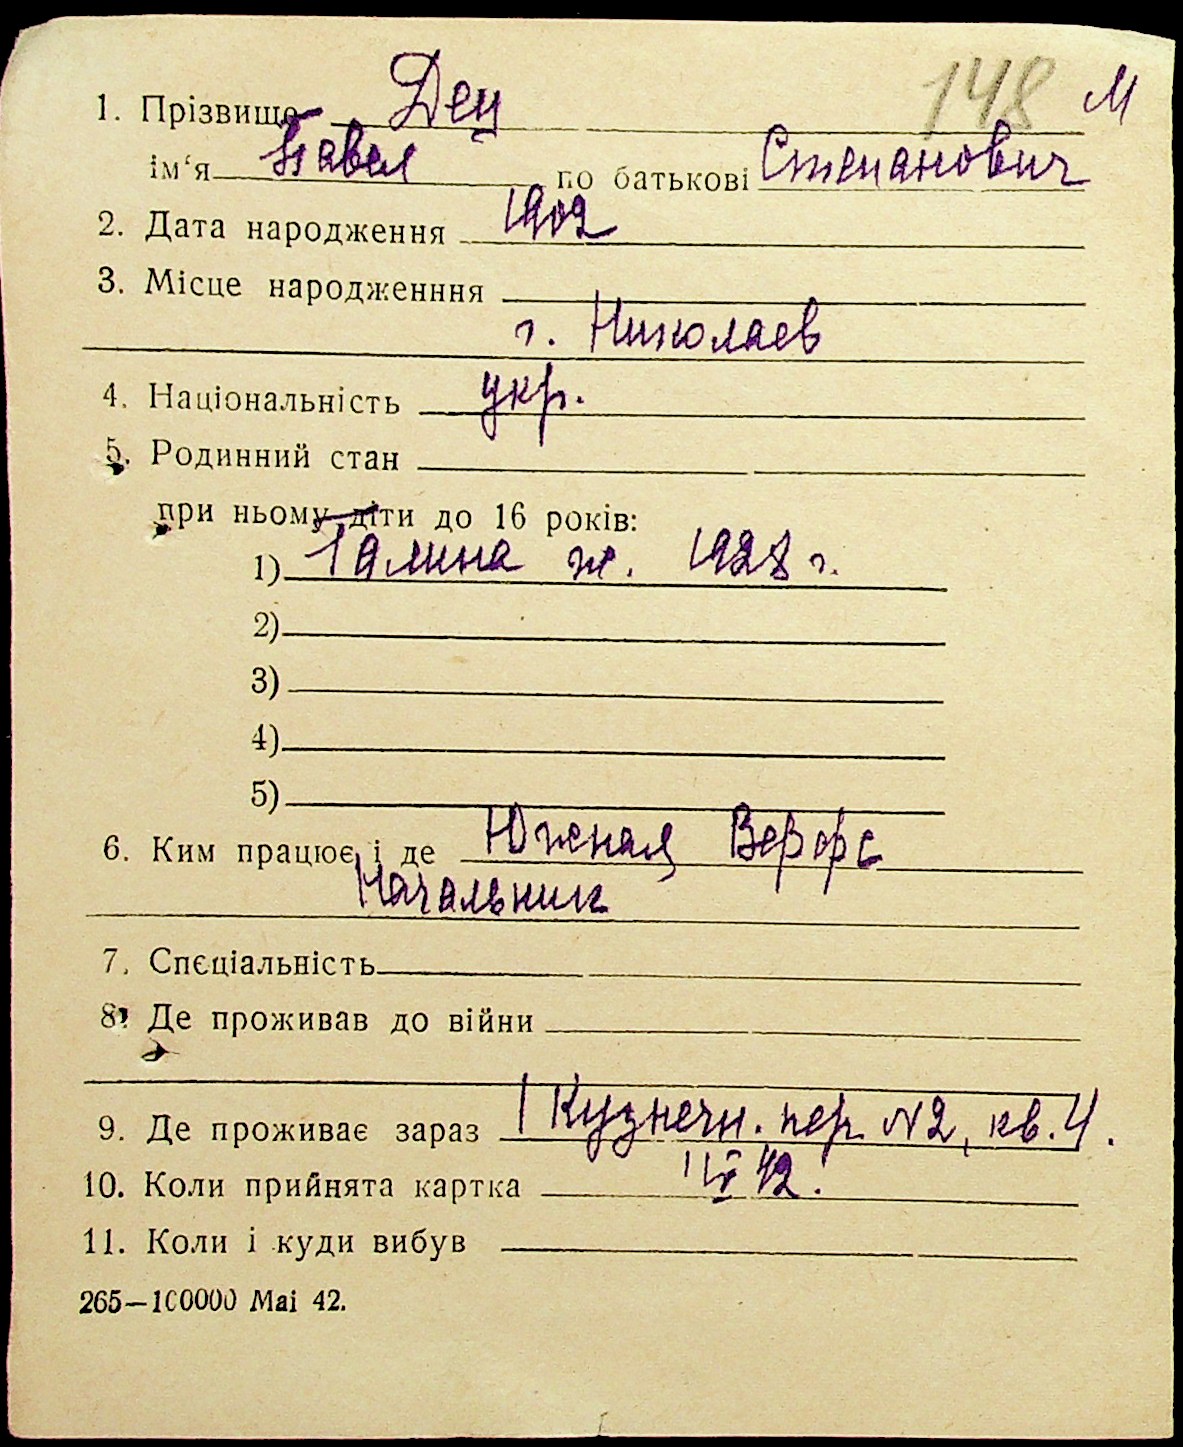 148 М
1. Прізвище Дец
ім'я Павел по батькові Степанович
2. Дата народження 1902
3. Місце народженння
г. Николаев
4. Національність укр.
5. Родинний стан
при ньому діти до 16 років:
1) Галина ж. 1928 г.
2)
3)
4)
5)
6. Ким працює і де Южная Верфь
Начальник
7. Спєціальність
8. Де проживав до війни
9. Де проживає зараз 1 Кузнечн. пер. №2, кв. 4.
10. Коли прийнята картка 42.
11. Коли і куди вибув
265—100000 Mai 42.